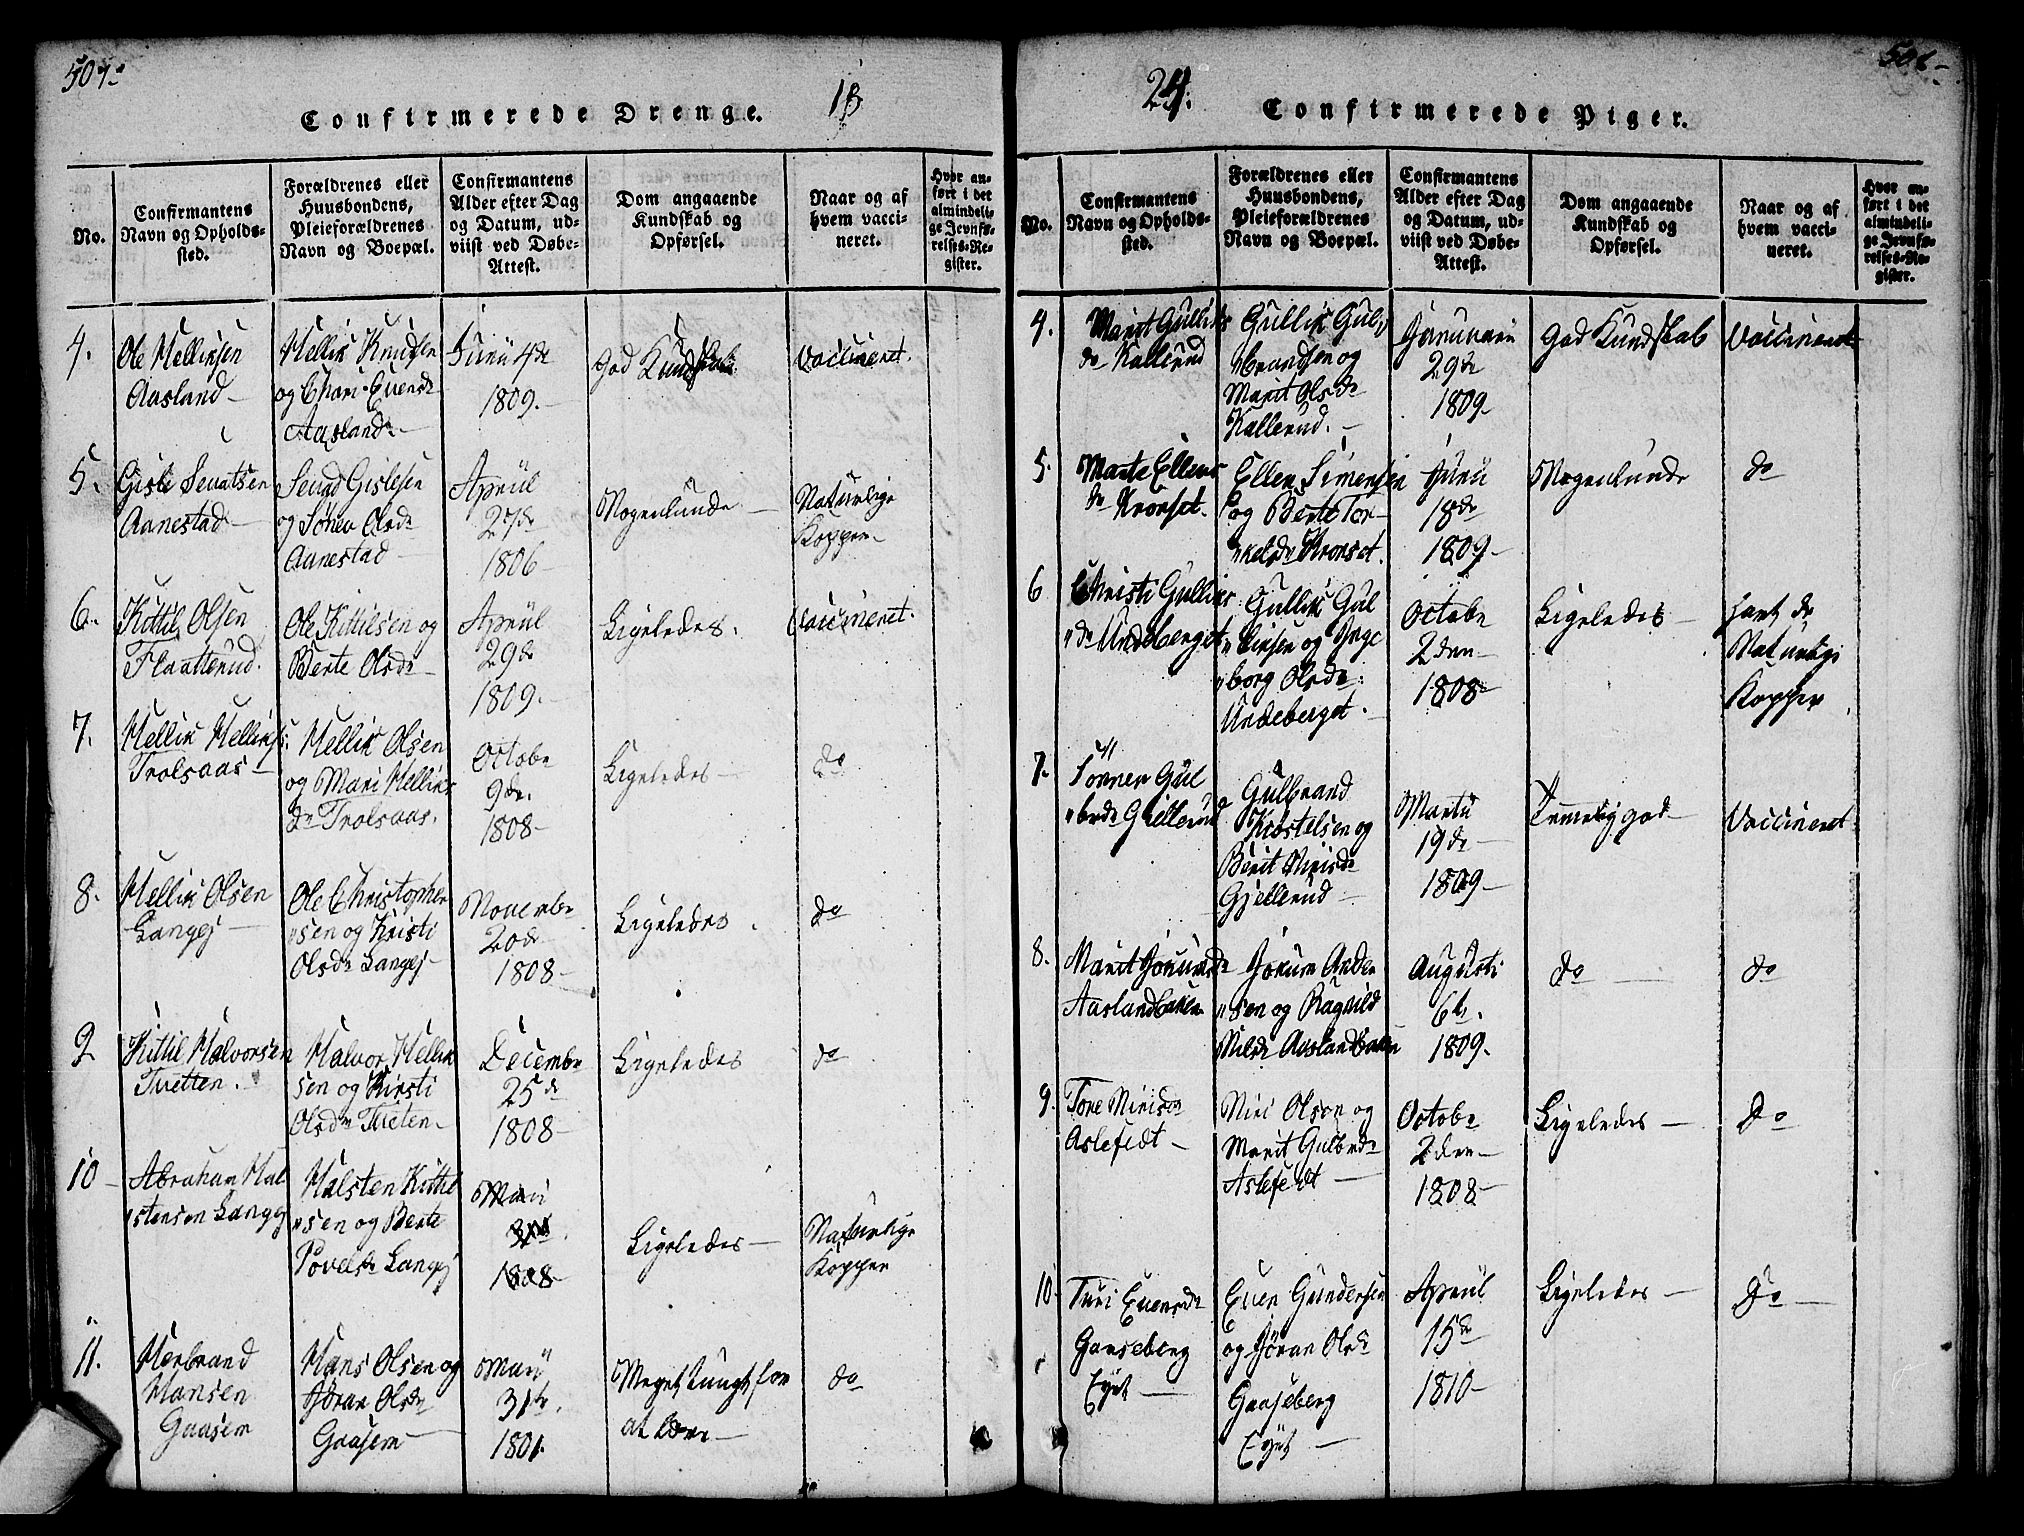 507-
13
Confirmerede Drenge.
No.
Confirmantens
Navn og Opholds-
sted.
Forældrenes eller
Huusbondens,
Pleieforældrenes
Navn og Boepæl.
Confirmantens
Alder efter Dag
og Datum, ud-
viist ved Døbe-
Attest.
Dom angaaende
Kundskab og
Opførsel.
Naar og af
hvem vacci-
neret.
Hvor an-
ført i det
almindeli-
ge Jevnfø-
relses-Re-
gister.
4.
Ole Hellicsen
Aasland
Hellik Knudsen
og Chari Evensdr
Aasland
Junii 4de
1809.
God Kundskab
Vaccineret.
5.
Gisle Senatsen
Annestad
Senad Gislesen
og Sønev Olsdr
Annestad
Apriil
27de
1806
Nogenlunde
Naturlige
Kopper
6.
Kittil Olsen
Flaatterud.
Ole Kittilsen og
Berte Olsdr
Apriil
29de
1809.
Ligeledes.
Vaccineret.
7.
Hellik Helliks.
Trolsaas
Hellik Olsen
og Mari Helliks
dr Trolsaas.
Octobr
9de.
1808
Ligeledes
do
8.
Hellik Olsen
Langej
Ole Christopher
sen og Kristi
Olsdr Langej
Novembr
20de
1808
Ligeledes
do
9
Kittil Halvorsen
Tvetten.
Halvor Hellik
sen og Kirsti
Olsdr Tveten
Decembr
25de
1808
Ligeledes
do
10
Abraham Hal
stensen Langej
Halsten Kittil
sen og Berte
Povelsdr Langej
Mari
31te
1808
Ligeledes
Naturlige
Kopper
11.
Herbrand
Hansen
Gaasem
Hans Olsen og
Jøran Olsdr
Gaasem
Marii
31te.
1801.
Meget tungt for
at lære
do
24.
Confirmerede Piger.
No.
Confirmantens
Navn og Opholds-
sted.
Forældrenes eller
Huusbondens,
Pleieforældrenes
Navn og Boepæl.
Confirmantens
Alder efter Dag
og Datum, ud-
viist ved Døbe-
Attest.
Dom angaaende
Kundskab og
Opførsel.
Naar og af
hvem vacci-
neret.
Hvor an-
ført i det
almindeli-
ge Jevnfø-
relses-Re-
gister.
4.
Marit Gulliks
dr Kallerud
Gullik Gul-
brandsen og
Marit Olsdr
Kallerud.
Januarii
29de
1809
God Kundskab
Vaccineret
5.
Marte Ellens
dr Kronset.
Ellen Simensen
og Berte Tor-
keldr Kronset.
Junii
18de
1809
Nogenlunde
do
6
Christi Gulliks
dr Undeberget
Gullik Gul
liksen og Inge
borg Olsdr
Undeberget.
Octobr
2den
1808
Ligeledes
havt de
Naturlige
Kopper
7.
Sønnev Gul
bsdr Gjellerud
Gulbrand
Kiøstelsen og
Berit Nirisdr
Gjellerud
Martii
19de
1809
Temelig god
Vaccineret
8.
Marit Jorumsdr
Aaslandbaken
Jorum Ander
sen og Ragnild
Nilsdr Aaslandbaken
Augusti
6te.
1809.
do
do
9.
Tore Nirisdr
Aslefedt
Niri Olson og
Marit Gulbrdr
Aslefedt
Octobr
2den
1808
Ligeledes
do
10
Turi Evensdr
Gaaseberg
Eyet
Even Gundersen
og Jøran Olsdr
Gaaseberg
Eyet
Apriil
15de
1810
Ligeledes
do